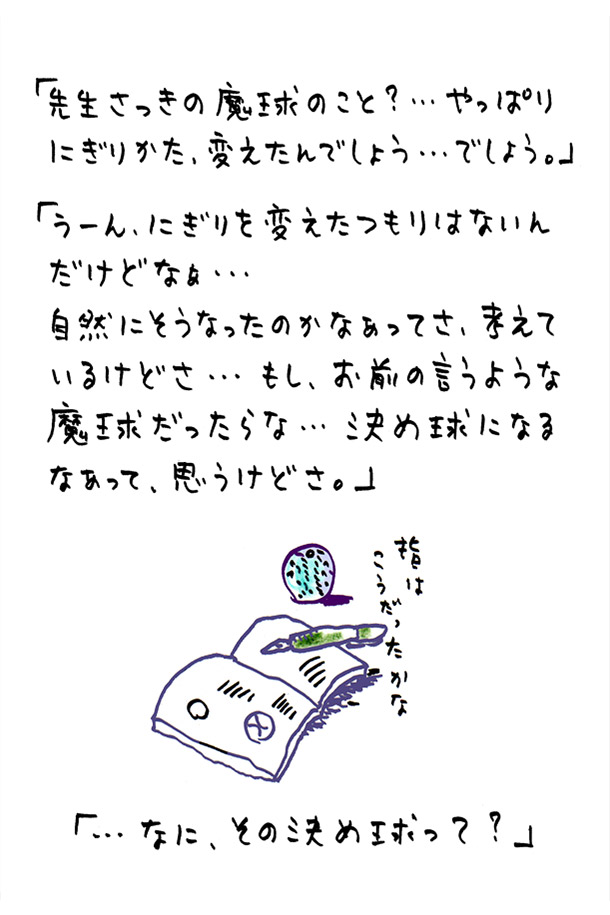 「先生さっきの魔球のこと?…やっぱり
にぎりかた、変えたんでしょう…でしょう。」
「うーん、にぎりを変えたつもりはないん
だけどなぁ…
自然にそうなったのかなあってさ、考えて
いるけどさ…もし、お前の言うような
魔球だったらな…決め球になる
なあって、思うけどさ。」
指は
こうだったかな
「…なに、その決め球って?」